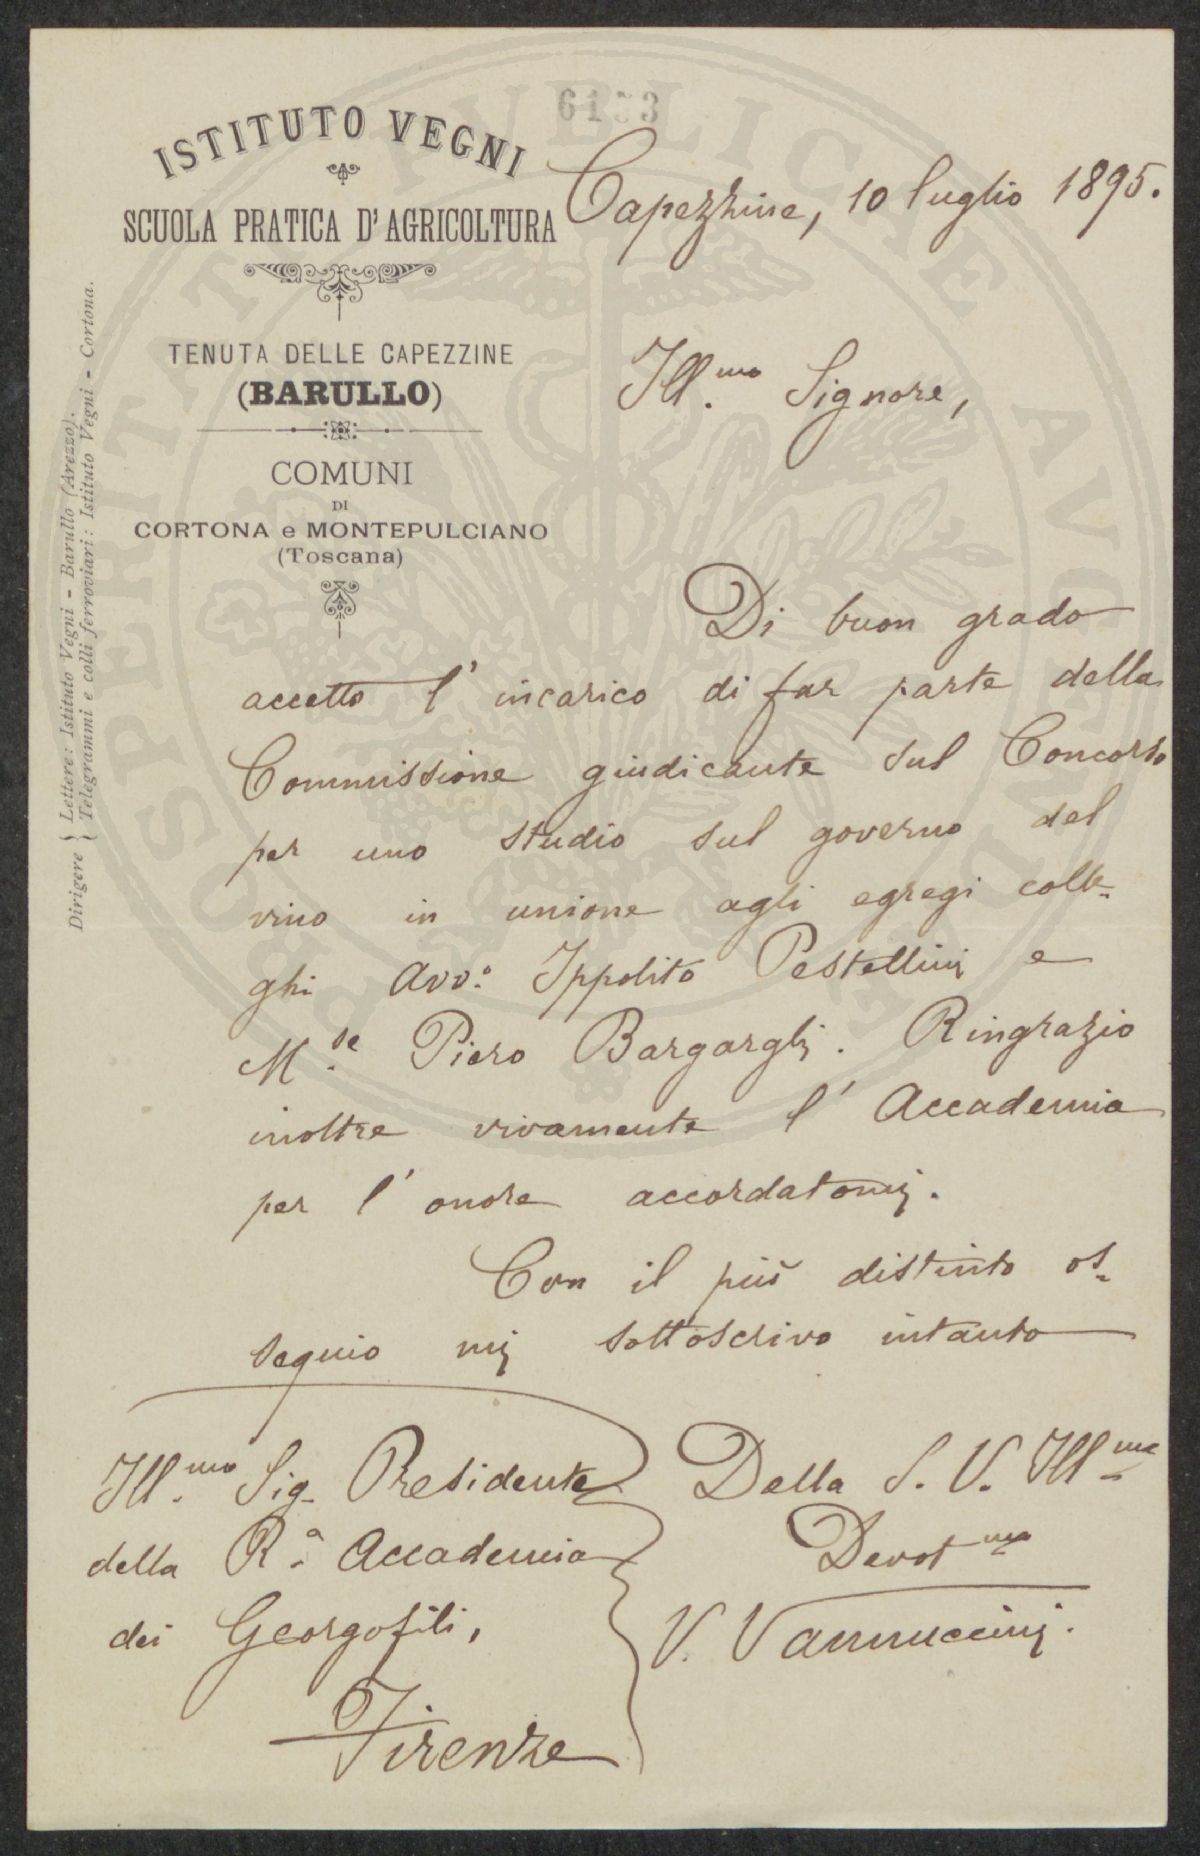 6133
ISTITUTO VEGNI
SCUOLA PRATICA D'AGRICOLTURA
TENUTA DELLE CAPEZZINE
(BARULLO)
COMUNI
DI
CORTONA e MONTEPULCIANO
(Toscana)
Dirigere { Lettere: Istituto Vegni - Barullo (Arezzo).
Telegrammi e colli ferroviari: Istituto Vegni - Cortona.
PROSPERITATI PVBLICAE AVGENDAE
Capezzine, 10 luglio 1895.
Ill.mo Signore,
Di buon grado
accetto l'incarico di far parte della
Commissione giudicante sul Concorso
per uno studio sul governo del
vino in unione agli egregi colle-
ghi Avv.o Ippolito Pestellini e
M.se Piero Bargagli. Ringrazio
inoltre vivamente l'Accademia
per l'onore accordatomi.
Con il più distinto os-
sequio mi sottoscrivo intanto
Della S. V. Ill.ma
Devot.mo
V. Vannuccini.
Ill.mo Sig. Presidente
della R.a Accademia
dei Georgofili,
Firenze